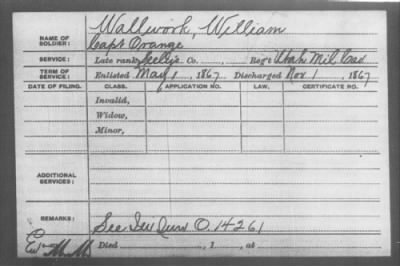 NAME OF SOLDIER: Wallwork, William
Capt Orange
SERVICE: Late rank, Seely's Co., Reg't Utah Mil. Cav
TERM OF SERVICE: Enlisted May 1, 1867 Discharged Nov 1, 1867
DATE OF FILING. CLASS. APPLICATION NO. LAW. CERTIFICATE NO.
Invalid,
Widow,
Minor,
ADDITIONAL SERVICES:
REMARKS: See Ind. O. 14261
Died , 1 , at